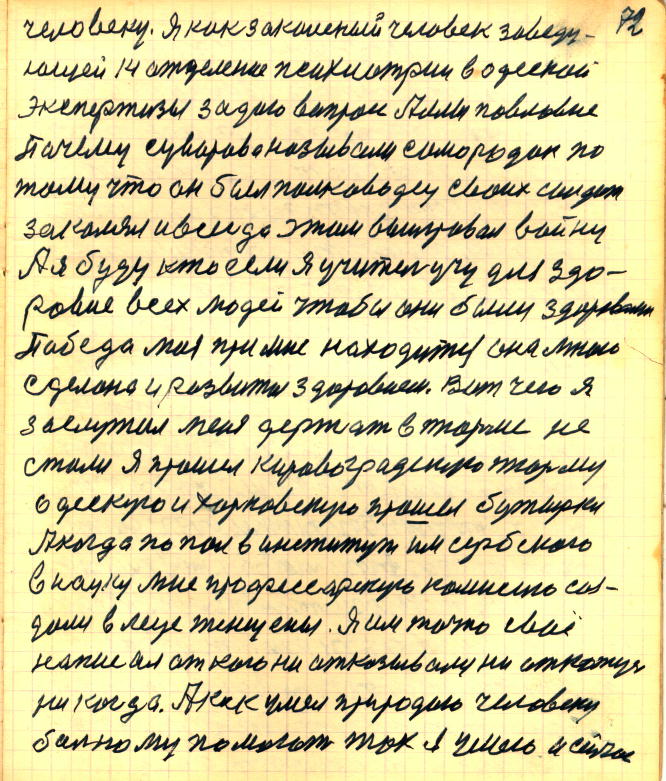 72
человеку. Я как закаленый человек заведу-
ющей 14 отделение психиатрии в одеской
экспертизы задаю вапрос Алли павловне
Пачему суворова называли самородок по
тому что он был полководец своих солдат
закалял и всегда этим выигровал войну
А я буду кто если я учител учу для здо-
ровие всех людей чтобы они были здоровыми
Пабеда моя при мне находится она мною
сделана и развита здоровием. Вот чего я
заслужил меня держат в тюрме не
стали Я прошел кировоградскую тюрму
одескую и харковскую прошел бутырки
А когда попал в институт им сербского
в науку мне професcарскую комисию соз-
дали в леце женщены. Я им точно своё
написал от кого ни отказывали ни откажуся
ни когда. А как умел природою человеку
болному помогат так я умею и сейчас